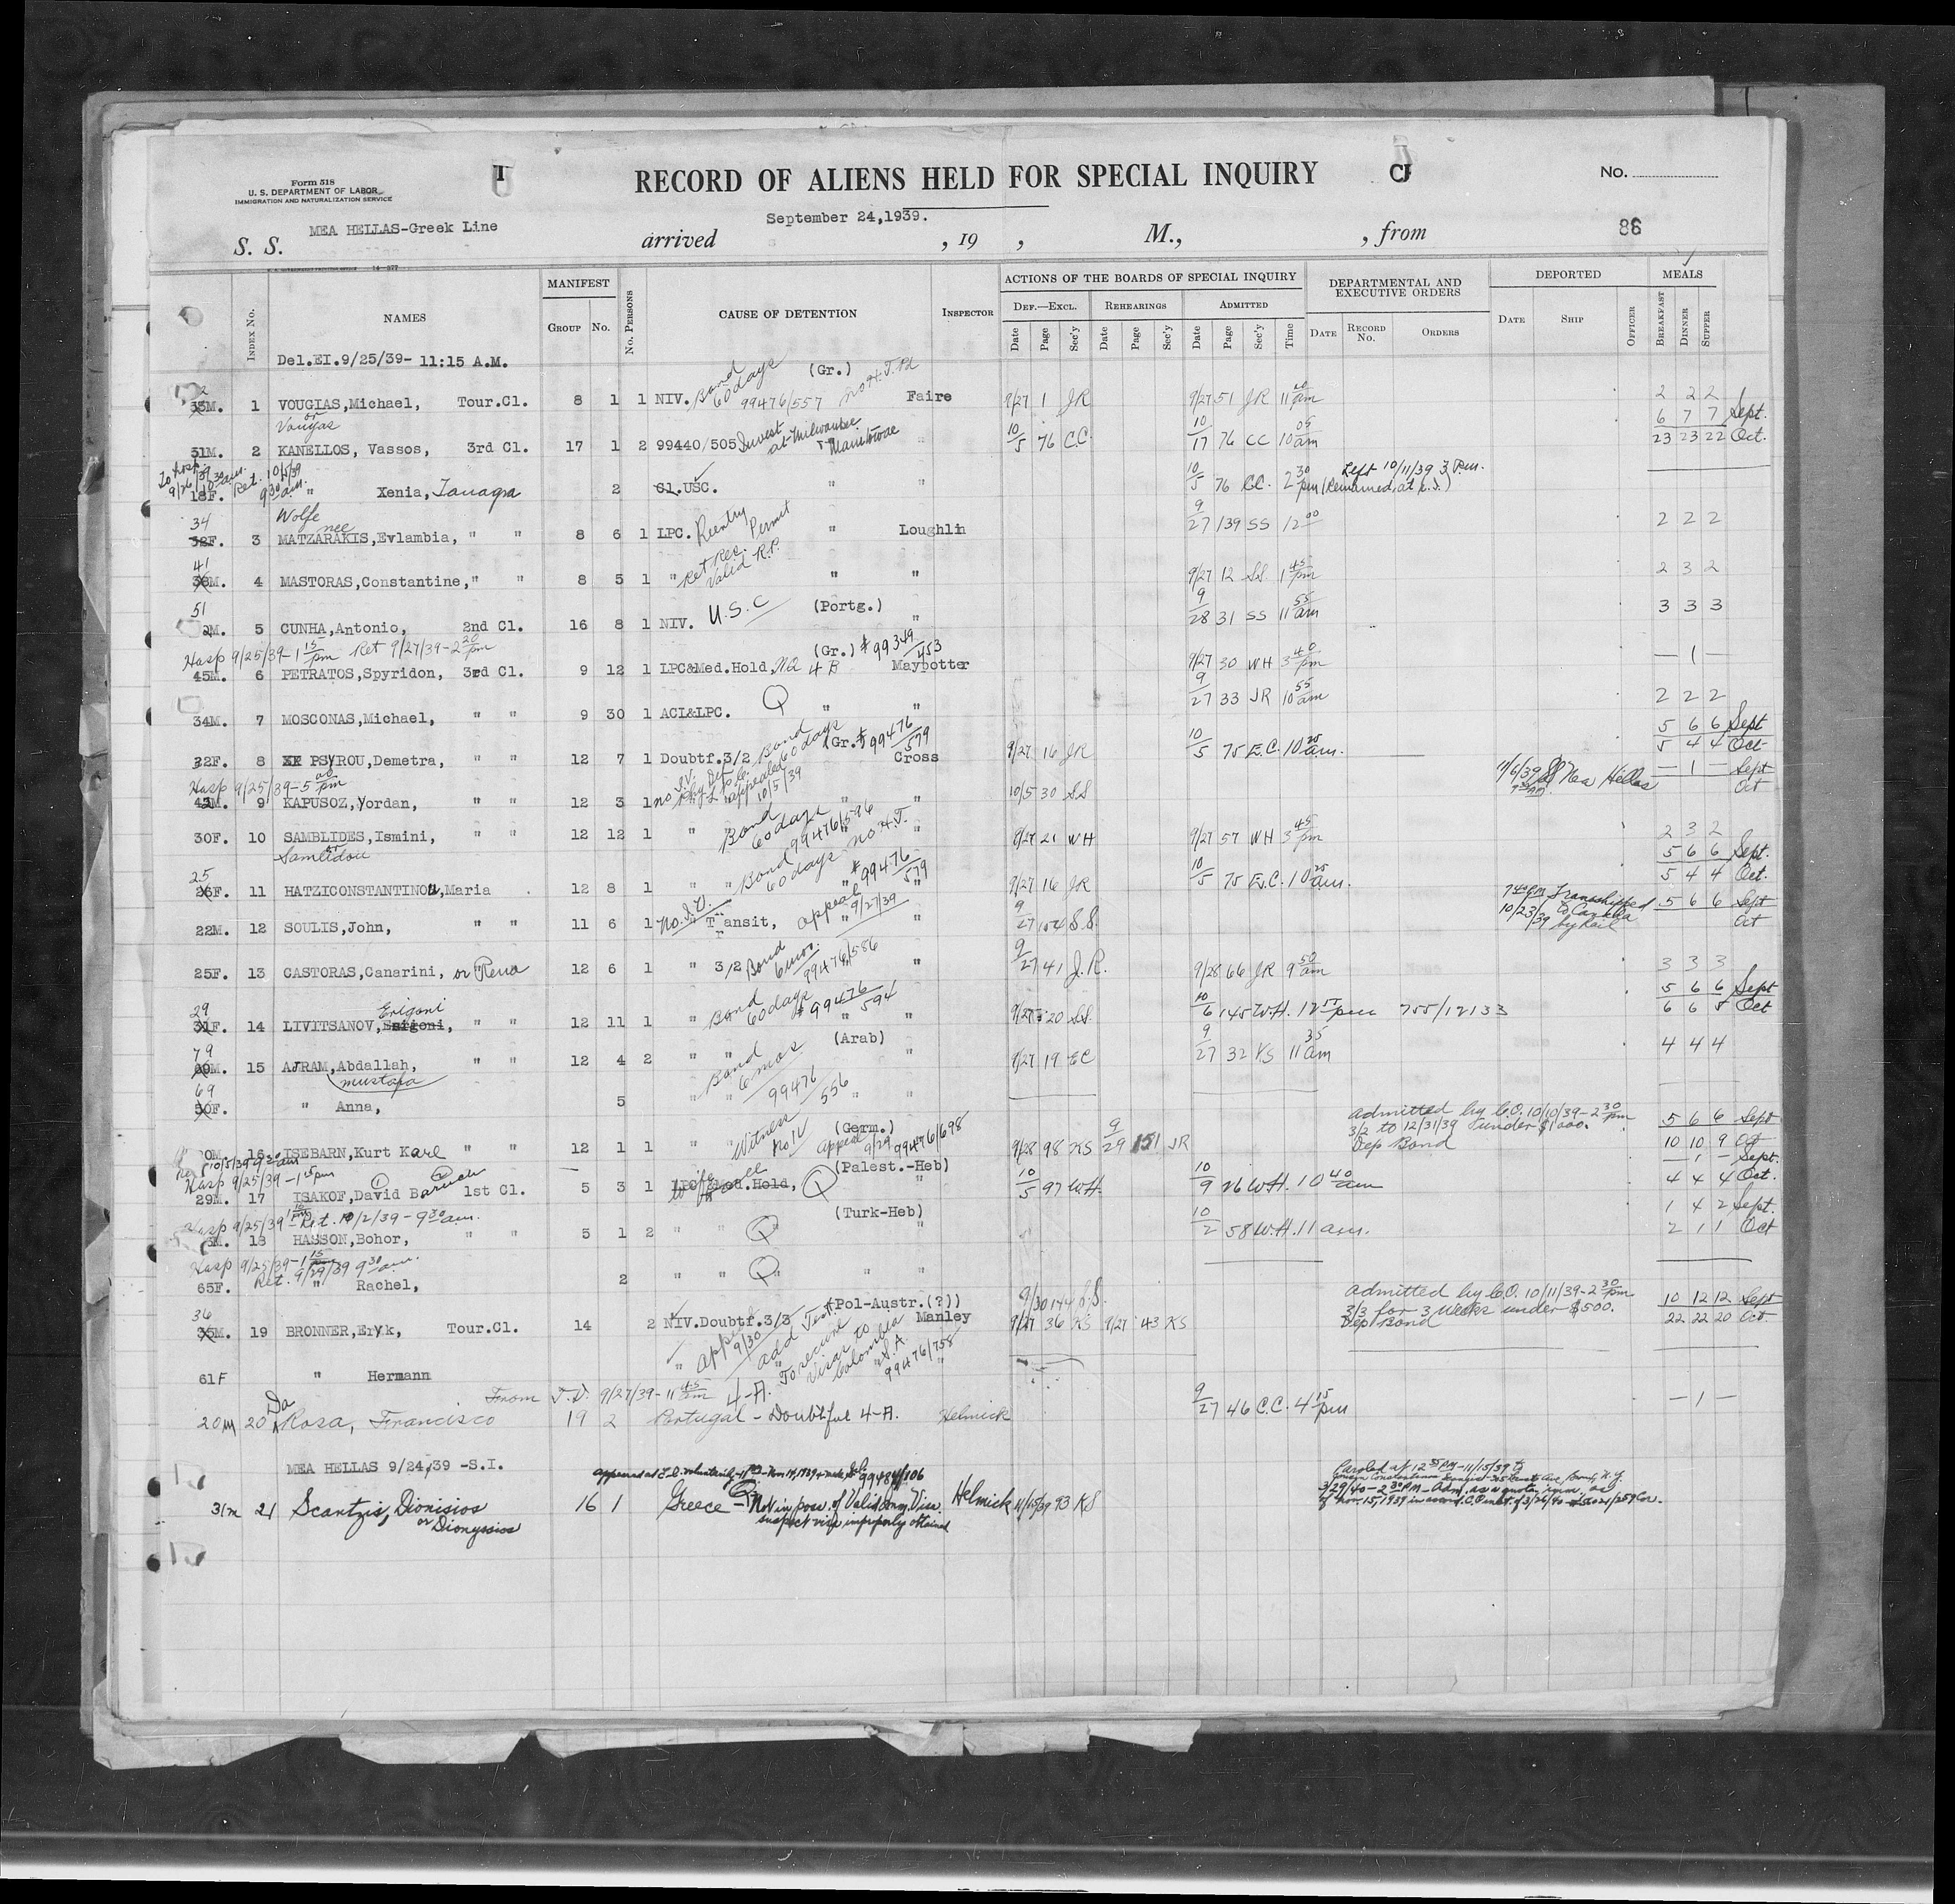 Form 518
U. S. DEPARTMENT OF LABOR
IMMIGRATION AND NATURALIZATION SERVICE
RECORD OF ALIENS HELD FOR SPECIAL INQUIRY
No.
S. S. MEA HELLAS-Greek Line arrived September 24,1939. , 19 , M., , from 86
INDEX No. NAMES MANIFEST GROUP No. No. PERSONS CAUSE OF DETENTION INSPECTOR
ACTIONS OF THE BOARDS OF SPECIAL INQUIRY DEF.—EXCL. Date Page Sec'y REHEARINGS Date Page Sec'y ADMITTED Date Page Sec'y Time
DEPARTMENTAL AND EXECUTIVE ORDERS DATE RECORD No. ORDERS
DEPORTED DATE SHIP OFFICER MEALS BREAKFAST DINNER SUPPER
Del.EI.9/25/39- 11:15 A.M.
(Gr.) Bond 60 days 99476/557
1 VOUGIAS,Michael, Tour.Cl. 8 1 1 NIV. Faire 9/27 1 JR 9/27 51 JR 11 am 2 2 2
or Vougas 6 7 7 Sept.
31M. 2 KANELLOS, Vassos, 3rd Cl. 17 1 2 99440/505 Invest at Milwaukee Manitowoc " 10/5 76 C.C. 10/17 76 CC 10 05 am 23 23 22 Oct.
To Hosp 9/26/39 Ret. 10/5/39 9 30 am.
18F. " Xenia, Tanagra 2 Cl.USC. " " 10/5 76 CC. 2 30 pm Left 10/11/39 3 P.m.
Wolfe nee
34 32F. 3 MATZARAKIS,Evlambia, " " 8 6 1 LPC. Reentry Permit " Loughlin 9/27 139 SS 12 00 2 2 2
41 M. 4 MASTORAS,Constantine," " 8 5 1 " Ret Res. Valid R.P. " " 9/27 12 SS. 1 45 pm 2 3 2
51 M. 5 CUNHA,Antonio, 2nd Cl. 16 8 1 NIV. U.S.C (Portg.) " 9/28 31 SS 11 55 am 3 3 3
Hosp 9/25/39-1 15 pm Ret 9/27/39-2 20 pm (Gr.) #99349/453
45M. 6 PETRATOS,Spyridon, 3rd Cl. 9 12 1 LPC&Med.Hold, 4 B Maybotter 9/27 30 WH 3 40 pm — 1 —
34M. 7 MOSCONAS,Michael, " " 9 30 1 ACL&LPC. Q " " 9/27 33 JR 10 55 am 2 2 2
Bond 60 days (Gr.) #99476/579 5 6 6 Sept
22F. 8 PSYROU,Demetra, " " 12 7 1 Doubtf.3/2 Cross 9/27 16 JR 10/5 75 E.C. 10 25 am. 5 4 4 Oct
Hosp 9/25/39-5 pm
M. 9 KAPUSOZ,Yordan, " " 12 3 1 no I.V. appealed 10/5/39 " " 10/5 30 SS 11/6/39 SS Nea Hellas — 1 — Sept Oct
30F. 10 SAMBLIDES,Ismini, " " 12 12 1 " Bond 60 days 99476/596 " 9/27 21 WH 9/27 57 WH 3 45 pm 2 3 2
or Samlidou 5 6 6 Sept.
25 F. 11 HATZICONSTANTINOU,Maria 12 8 1 " " Bond 60 days no H.T. #99476/579 " 9/27 16 JR 10/5 75 E.C. 10 25 am. 5 4 4 Oct.
22M. 12 SOULIS,John, " " 11 6 1 No. I.V. Transit, appeal 9/27/39 " 9/27 104 S.S. 10/23/39 Transshipped to Canada by Rail 5 6 6 Sept Oct
25F. 13 CASTORAS,Canarini, or Rena 12 6 1 " 3/2 Bond 6 mos. 99476/586 " 9/27 41 J.R. 9/28 66 JR 9 50 am 3 3 3
Erigoni 5 6 6 Sept
29 31F. 14 LIVITSANOV, " " 12 11 1 " Bond 60 days #99476/594 " 9/27 20 SS 10/6 145 W.H. 1 pm 755/12133 6 6 5 Oct
(Arab)
79 M. 15 AJRAM,Abdallah, " " 12 4 2 " " Bond 6 mos 99476/556 " 9/27 19 EC 9/27 32 KS 11 35 am 4 4 4
mustafa
69 50F. " Anna, 5 " " " "
(Germ.) Witness no IV appeal 9/29 99476/698 admitted by C.O. 10/10/39-2 30 pm 5 6 6 Sept
M. 16 ISEBARN,Kurt Karl " " 12 1 1 " " " 9/28 98 KS 9/29 151 JR 3/2 to 12/31/39 under $1000. Dep Bond 10 10 9 Oct
Hosp 9/25/39-1 15 pm (Palest.-Heb) — 1 — Sept.
29M. 17 ISAKOF,David Baruch 1st Cl. 5 3 1 LPC&Med.Hold, Q " 10/5 97 W.H. 10/9 26 W.H. 10 40 am 4 4 4 Oct.
Hosp 9/25/39 Ret. 10/2/39-9 30 am. (Turk-Heb) 1 4 2 Sept.
M. 18 HASSON,Bohor, " " 5 1 2 " " Q " 10/2 58 W.H. 11 am. 2 1 1 Oct
Hosp 9/25/39-1 15 pm Ret. 9/29/39 9 30 am.
65F. " Rachel, 2 " " Q " " "
(Pol-Austr.(?)) 9/30 144 S.S. admitted by C.O. 10/11/39-2 30 pm 10 12 12 Sept
36 35M. 19 BRONNER,Eryk, Tour.Cl. 14 2 NIV.Doubtf.3/3 Manley 9/27 36 KS 9/27 43 KS 3/3 for 3 weeks under $500. Dep Bond 22 22 20 Oct.
61F " Hermann " appeal 9/30 add Test. To secure visas to Colombia S.A. 99476/758
From T.D. 9/27/39-11 45 pm 4-A.
20m 20 Da Rosa, Francisco 19 2 Portugal - Doubtful 4-A. Helmick 9/27 46 C.C. 4 15 pm — 1 —
MEA HELLAS 9/24/39 -S.I.
appeared at E.I. voluntarily Nov 14, 1939 99484/106
31m 21 Scantzis, Dionisios 16 1 Greece - Not in poss. of Valid Visa. Helmick 11/15/39 93 KS
or Dionyssios suspect visa improperly obtained
Paroled at 12 PM-11/15/39 to
3/29/40-2 30 PM-Adm. as a quota imm. as
of Nov. 15, 1939